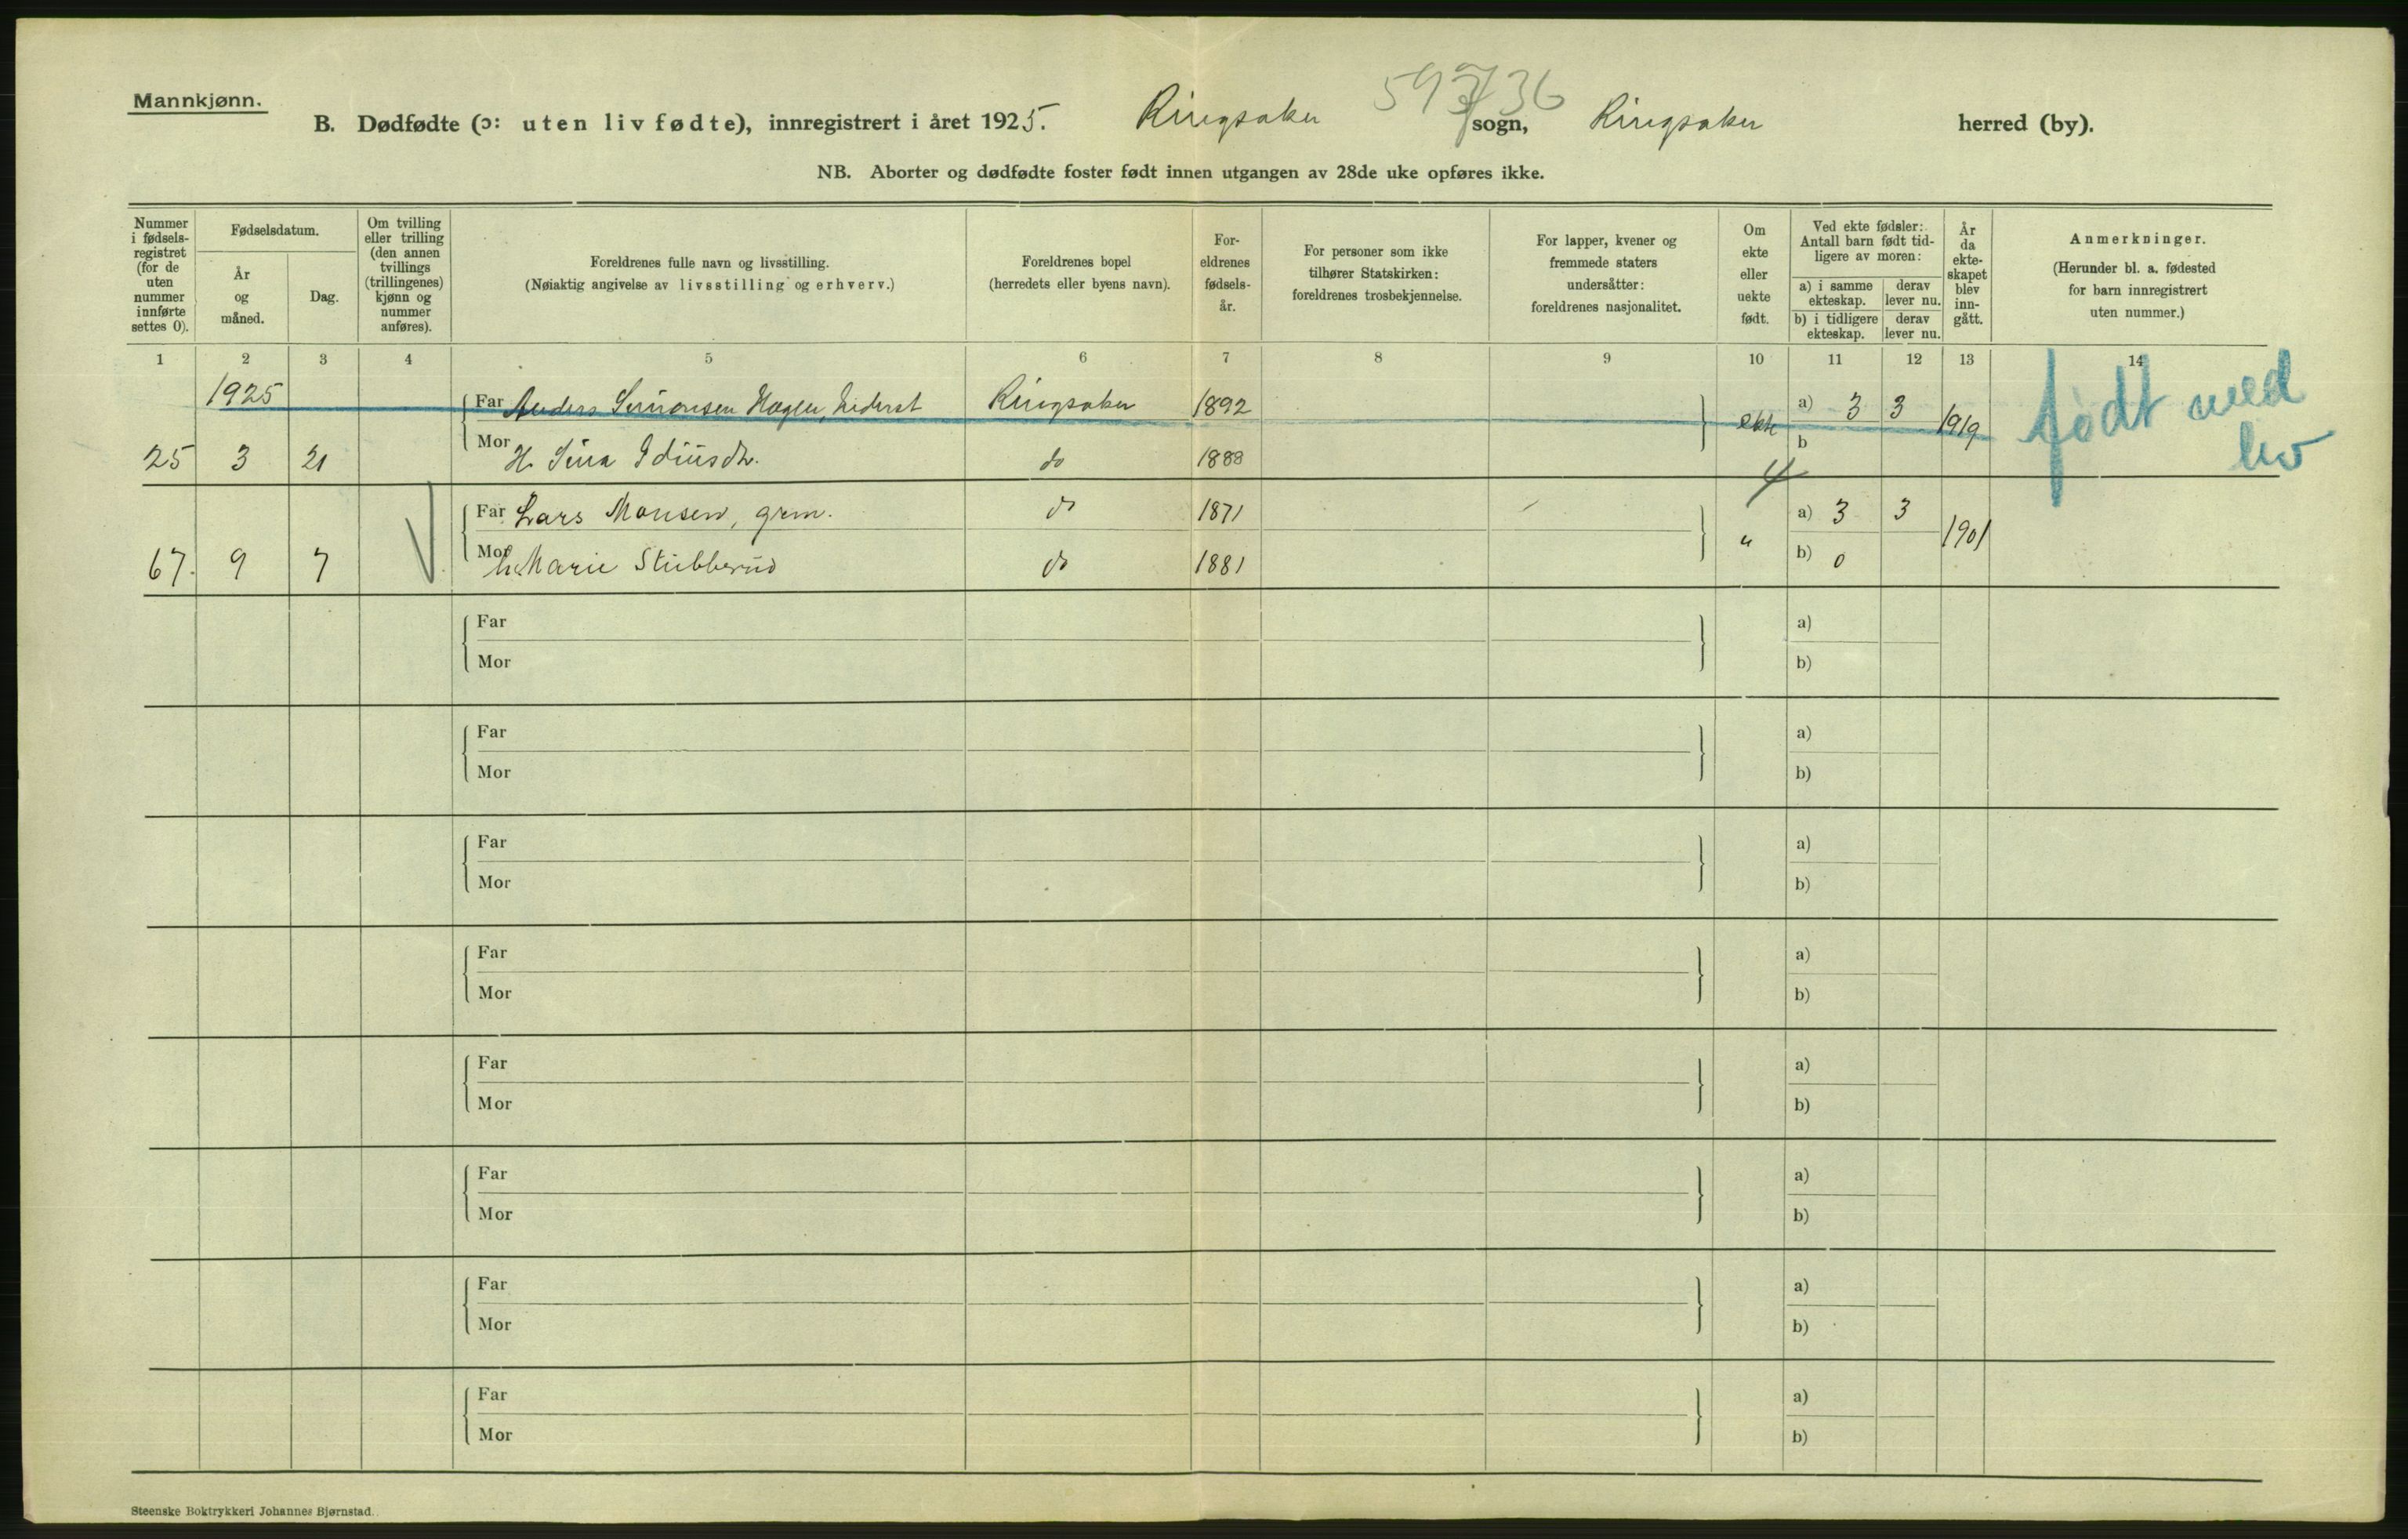 Mannkjønn.
B. Dødfødte (ɔ: uten liv fødte), innregistrert i året 1925. Ringsaker sogn, Ringsaker herred (by).
NB. Aborter og dødfødte foster født innen utgangen av 28de uke opføres ikke.
Nummer i fødsels-registret (for de uten nummer innførte settes 0).
Fødselsdatum.
År og måned.
Dag.
Om tvilling eller trilling (den annen tvillings (trillingenes) kjønn og nummer anføres).
Foreldrenes fulle navn og livsstilling.
(Nøiaktig angivelse av livsstilling og erhverv.)
Foreldrenes bopel
(herredets eller byens navn).
For-eldrenes fødsels-år.
For personer som ikke tilhører Statskirken: foreldrenes trosbekjennelse.
For lapper, kvener og fremmede staters undersåtter: foreldrenes nasjonalitet.
Om ekte eller uekte født.
Ved ekte fødsler: Antall barn født tid-ligere av moren:
a) i samme ekteskap.
derav lever nu.
b) i tidligere ekteskap.
derav lever nu.
År da ekte-skapet blev inn-gått.
Anmerkninger.
(Herunder bl. a. fødested for barn innregistrert uten nummer.)
1 2 3 4 5 6 7 8 9 10 11 12 13 14
1925
Far Anders Simonsen Ringsaker 1892 ekte a) 3 3 1919 født med liv
25 3 21 Mor H. do 1888 b
Far Lars Monsen, grm. do 1871 " a) 3 3 1901
67. 9 7 Mor Marie Stubberud do 1881 b) 0
Far a)
Mor b)
Far a)
Mor b)
Far a)
Mor b)
Far a)
Mor b)
Far a)
Mor b)
Far a)
Mor b)
Far a)
Mor b)
Far a)
Mor b)
Steenske Boktrykkeri Johannes Bjørnstad.